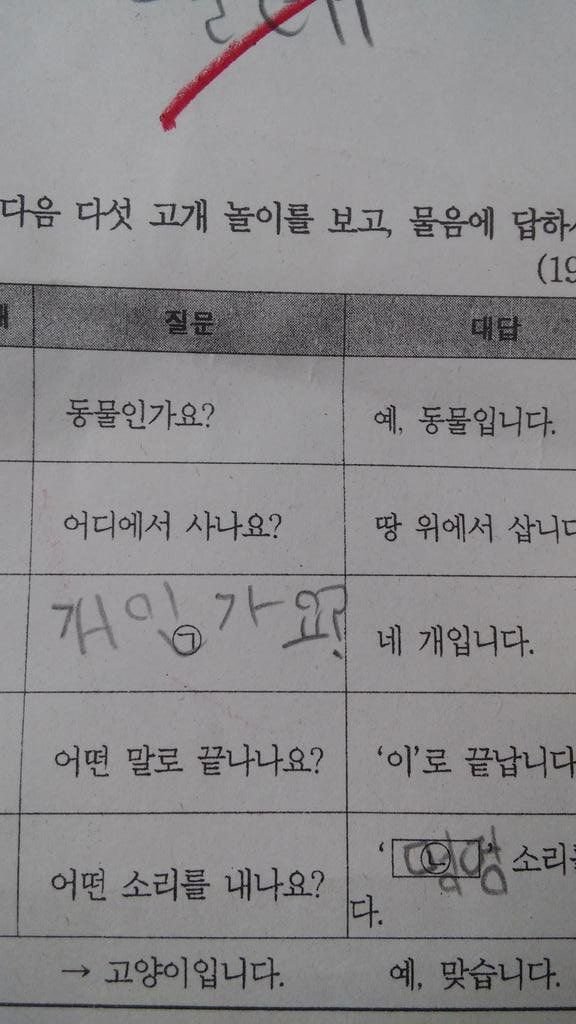 다음 다섯 고개 놀이를 보고, 물음에 답하
(19
질문 대답
동물인가요? 예, 동물입니다.
어디에서 사나요? 땅 위에서 삽니다
개인가요? ㉠ 네 개입니다.
어떤 말로 끝나나요? ‘이’로 끝납니다
어떤 소리를 내나요? ‘㉡’ 소리를
다.
→ 고양이입니다. 예, 맞습니다.